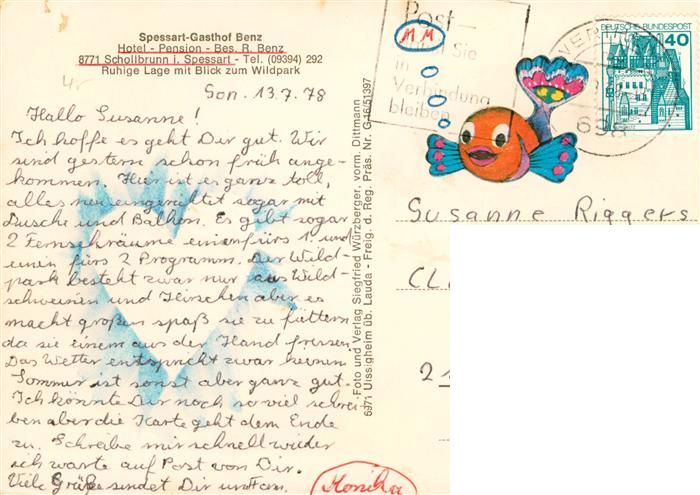 Spessart-Gasthof Benz
Hotel - Pension - Bes. R. Benz
8771 Schollbrunn i. Spessart - Tel. (09394) 292
Ruhige Lage mit Blick zum Wildpark
Son. 13.7.78
Hallo Susanne!
Ich hoffe es geht Dir gut. Wir
sind gestern schon früh ange-
kommen. Hier ist es ganz toll,
alles neu eingerichtet sogar mit
Dusche und Balkon. Es gibt sogar
2 Fernschräume einen fürs 1. und
einen fürs 2 Programm. Der Wild-
park besteht zwar nur aus Wild-
schweinen und Hirschen aber es
macht großen spaß sie zu füttern
da sie einem aus der Hand fressen.
Das Wetter entspricht zwar keinem
Sommer ist sonst aber ganz gut.
Ich könnte Dir noch so viel schrei-
ben aber die Karte geht dem Ende
zu. Schreibe mir schnell wider
ich warte auf Post von Dir.
Viele Grüße sendet Dir
Monika
Foto und Verlag Siegfried Würzberger, vorm. Dittmann
6971 Uissigheim üb. Lauda - Freig. d. Reg. Präs. Nr. G 16/51397
Post
MM
Sie
in
Verbindung
bleiben
698
DEUTSCHE BUNDESPOST
40
Susanne Riggers
CL
2